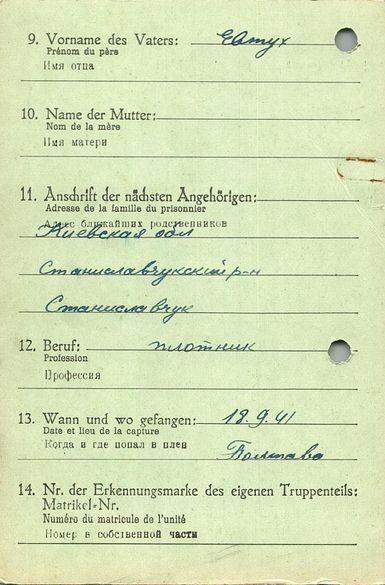 9. Vorname des Vaters: Евтух
Prénom du père
Имя отца
10. Name der Mutter:
Nom de la mère
Имя матери
11. Anschrift der nächsten Angehörigen:
Adresse de la famille du prisonnier
Адрес ближайших родственников
Киевская обл
Станиславчукский р-н
Станиславчук
12. Beruf: плотник
Profession
Профессия
13. Wann und wo gefangen: 18.9.41
Date et lieu de la capture
Когда и где попал в плен Полтава
14. Nr. der Erkennungsmarke des eigenen Truppenteils:
Matrikel-Nr.
Numéro du matricule de l'unité
Номер в собственной части